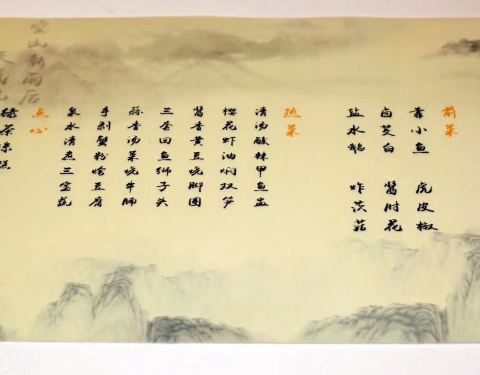 前菜
靠小鱼 虎皮椒
卤茭白 酱肘花
盐水鹅 炸茨菇
热菜
清汤酸辣甲鱼盅
樱花虾油焖双笋
酱香黄豆烧脚圈
三套回鱼狮子头
蒜香汤菜烧牛
手剥蟹粉烩豆腐
泉水清煮三宝蔬
点心
绿茶凉
空山新雨后
天气